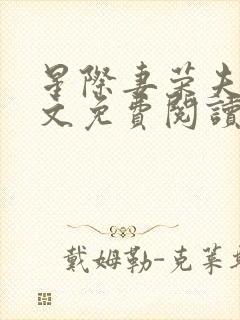 星際妻榮夫
文免費閱讀
戴姆勒-克萊